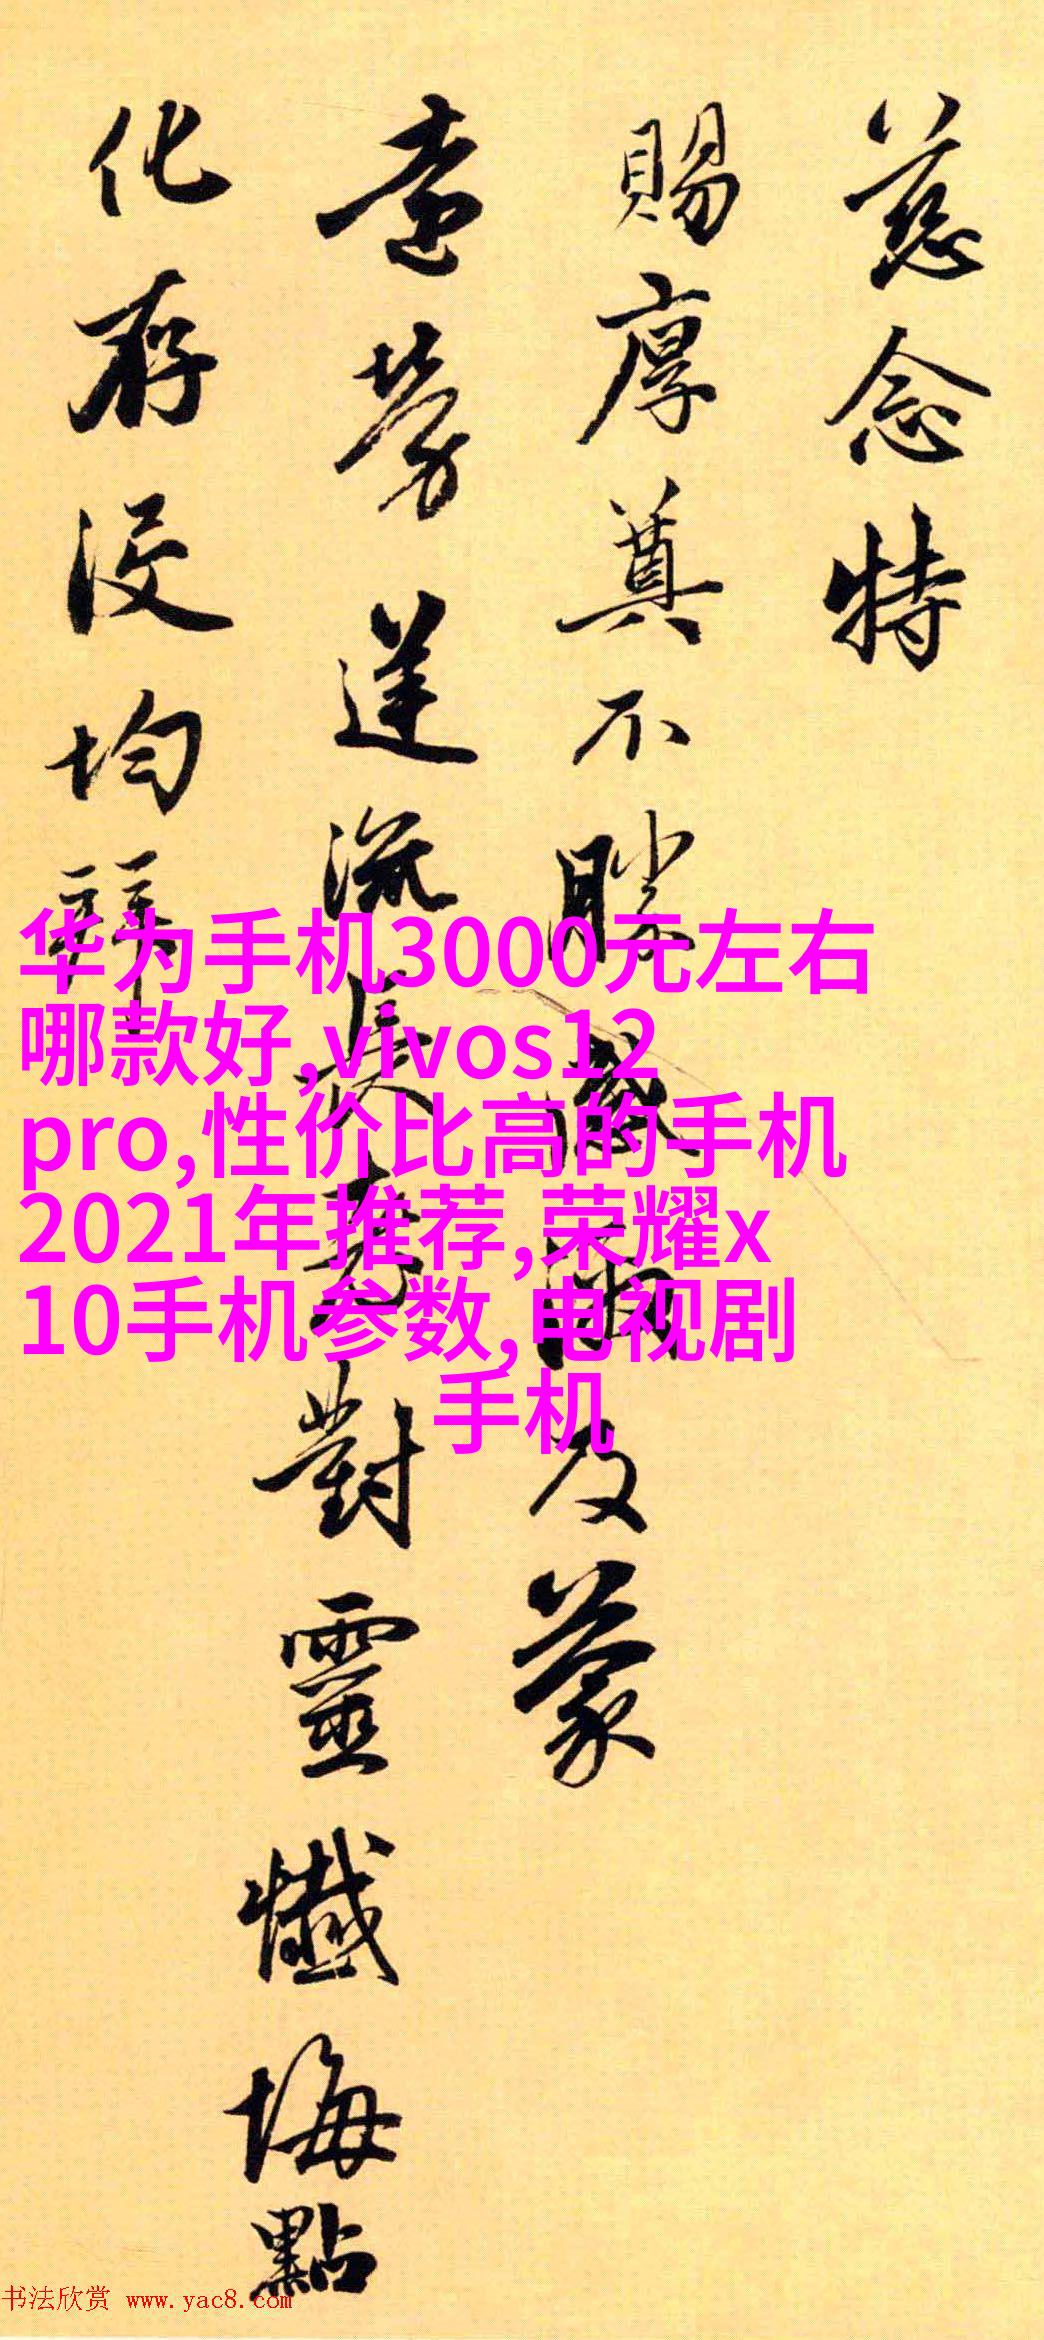 慈念特
賜厚奠不勝感及蒙
遠勞達流長老對靈懺悔點
化存没均拜
华为手机3000元左右
哪款好,vivos12
pro,性价比高的手机
2021年推荐,荣耀x
10手机参数,电视剧
手机
书法欣赏 www.yac8.com